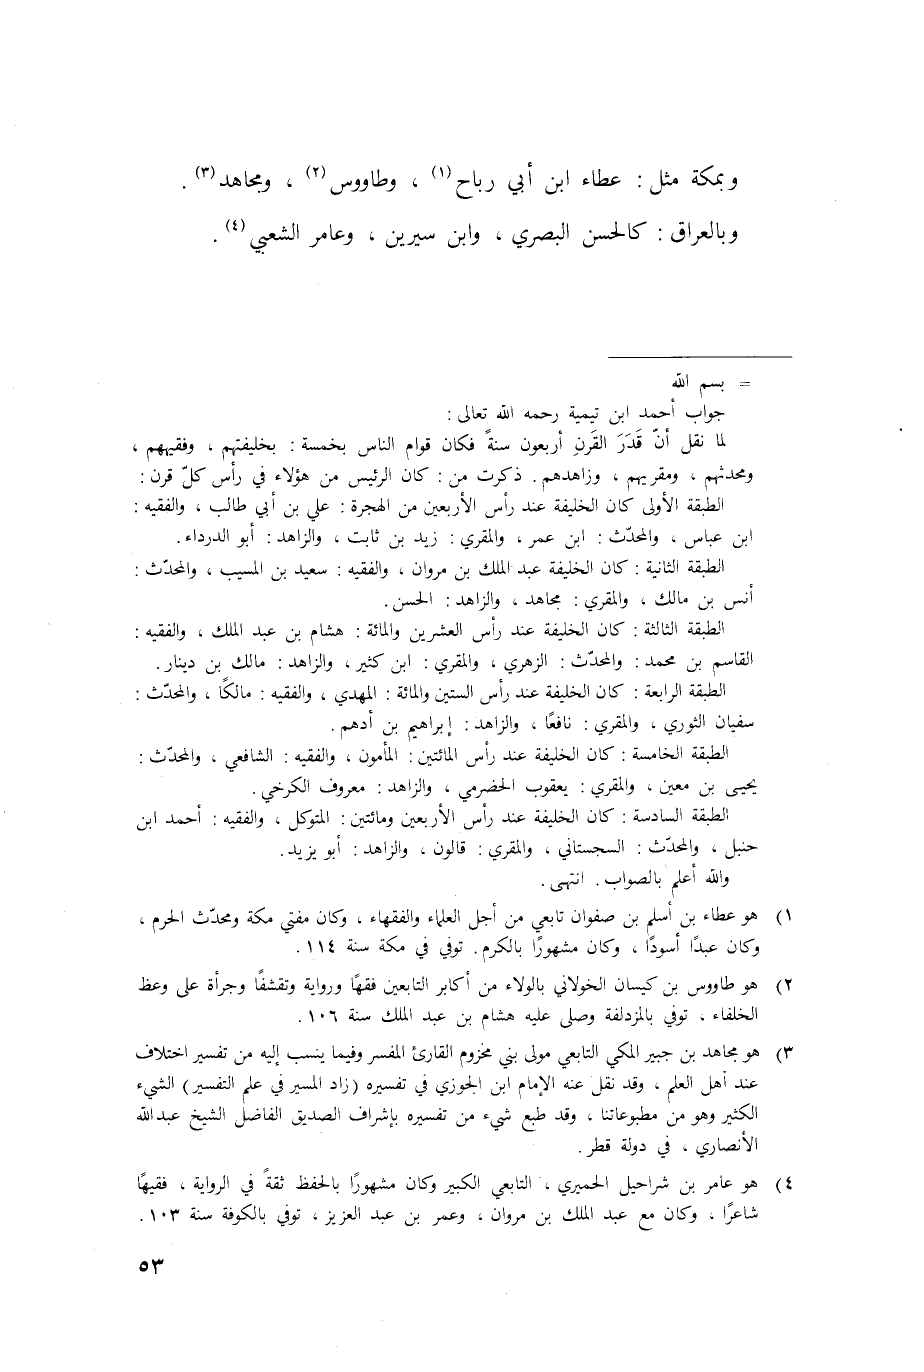 وبمكة مثل : عطاء ابن أبي رباح (١) ، وطاووس (٢) ، ومجاهد (٣) .
وبالعراق : كالحسن البصري ، وابن سيرين ، وعامر الشعبي (٤) .
= بسم الله
جواب أحمد ابن تيمية رحمه الله تعالى :
لما نقل أنّ قَدَرَ القَرنِ أربعون سنةً فكان قوام الناس بخمسة : بخليفتهم ، وفقيههم ،
ومحدثهم ، ومقريهم ، وزاهدهم . ذكرت من : كان الرئيس من هؤلاء في رأس كلّ قرن :
الطبقة الأولى كان الخليفة عند رأس الأربعين من الهجرة : علي بن أبي طالب ، والفقيه :
ابن عباس ، والمحدّث : ابن عمر ، والمقري : زيد بن ثابت ، والزاهد : أبو الدرداء .
الطبقة الثانية : كان الخليفة عبد الملك بن مروان ، والفقيه : سعيد بن المسيب ، والمحدّث :
أنس بن مالك ، والمقري : مجاهد ، والزاهد : الحسن .
الطبقة الثالثة : كان الخليفة عند رأس العشرين والمائة : هشام بن عبد الملك ، والفقيه :
القاسم بن محمد : والمحدّث : الزهري ، والمقري : ابن كثير ، والزاهد : مالك بن دينار .
الطبقة الرابعة : كان الخليفة عند رأس الستين والمائة : المهدي ، والفقيه : مالكًا ، والمحدّث :
سفيان الثوري ، والمقري : نافعًا ، والزاهد : إبراهيم بن أدهم .
الطبقة الخامسة : كان الخليفة عند رأس المائتين : المأمون ، والفقيه : الشافعي ، والمحدّث :
يحيى بن معين ، والمقري : يعقوب الحضرمي ، والزاهد : معروف الكرخي .
الطبقة السادسة : كان الخليفة عند رأس الأربعين ومائتين : المتوكل ، والفقيه : أحمد ابن
حنبل ، والمحدّث : السجستاني ، والمقري : قالون ، والزاهد : أبو يزيد .
والله أعلم بالصواب . انتهى .
١) هو عطاء بن أسلم بن صفوان تابعي من أجل العلماء والفقهاء ، وكان مفتي مكة ومحدّث الحرم ،
وكان عبدًا أسودًا ، وكان مشهورًا بالكرم . توفي في مكة سنة ١١٤ .
٢) هو طاووس بن كيسان الخولاني بالولاء من أكابر التابعين فقهًا ورواية وتقشفًا وجرأة على وعظ
الخلفاء ، توفي بالمزدلفة وصلى عليه هشام بن عبد الملك سنة ١٠٦ .
٣) هو مجاهد بن جبير المكي التابعي مولى بني مخزوم القارئ المفسر وفيما ينسب إليه من تفسير اختلاف
عند أهل العلم ، وقد نقل عنه الإمام ابن الجوزي في تفسيره ( زاد المسير في علم التفسير ) الشيء
الكثير وهو من مطبوعاتنا ، وقد طبع شيء من تفسيره بإشراف الصديق الفاضل الشيخ عبد الله
الأنصاري ، في دولة قطر .
٤) هو عامر بن شراحيل الحميري ، التابعي الكبير وكان مشهورًا بالحفظ ثقةً في الرواية ، فقيهًا
شاعرًا ، وكان مع عبد الملك بن مروان ، وعمر بن عبد العزيز ، توفي بالكوفة سنة ١٠٣ .
٥٣